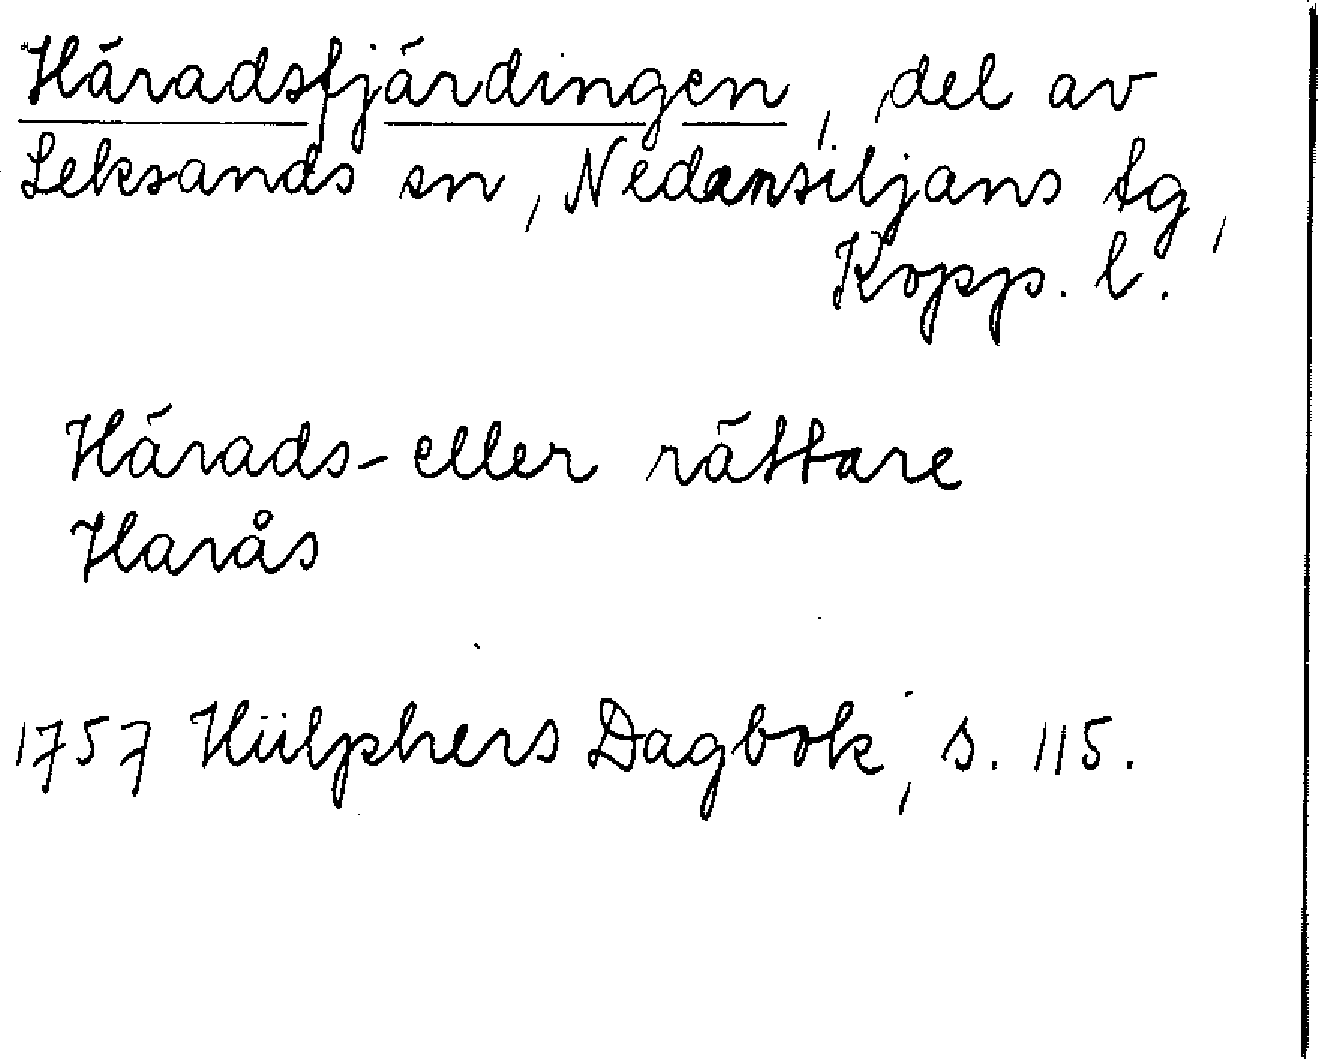 Häradsfjärdingen, del av
Leksands sn, Nedansiljans tg,
Kopp. l.
Härads- eller rättare
Harås
1757 Hülphers Dagbok, s. 115.